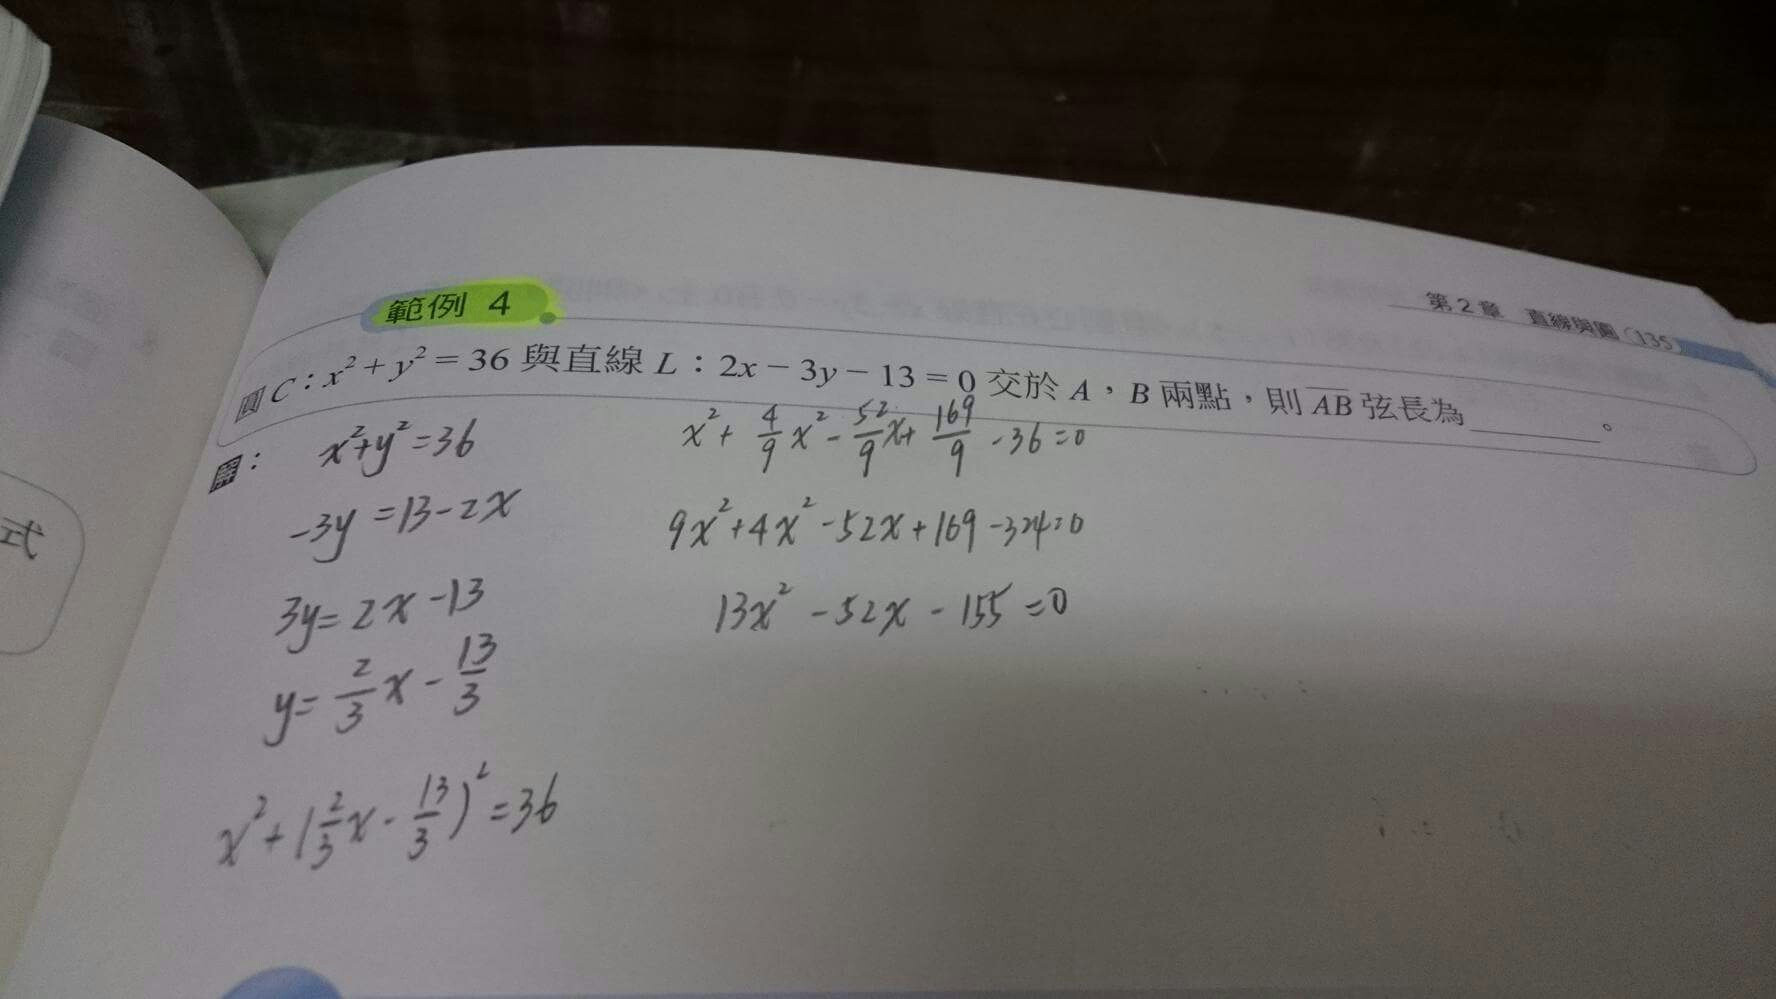 第2章 直線與圓 (135)
範例 4
圓 C：x²+y²=36 與直線 L：2x－3y－13=0 交於 A，B 兩點，則 AB 弦長為______。
解：
x²+y²=36
-3y=13-2x
3y=2x-13
y=2/3x-13/3
x²+(2/3x-13/3)²=36
x²+4/9x²-52/9x+169/9-36=0
9x²+4x²-52x+169-324=0
13x²-52x-155=0
式